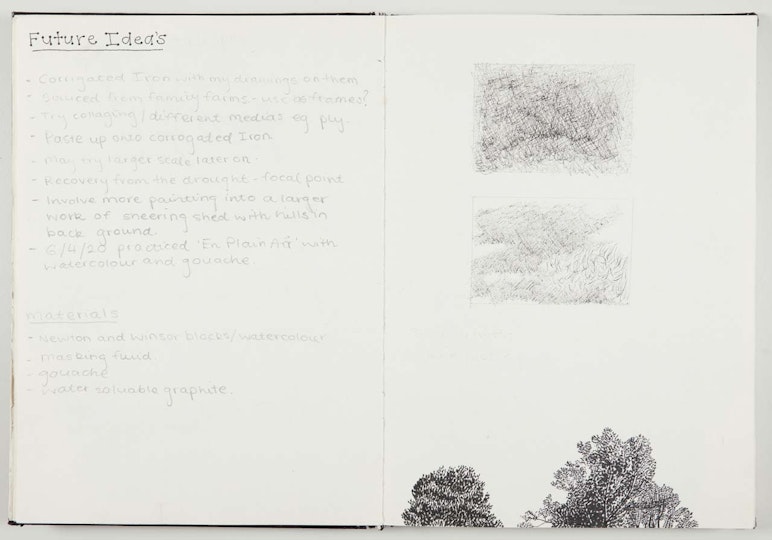 Future Idea's
- Corrigated Iron with my drawings on them
- Sauced from family farms - use as frames?
- Try collaging/different medias eg ply.
- Paste up onto corrogated Iron
- May try larger scale later on.
- Recovery from the drought - focal point
- Involve more painting into a larger
work of sheering shed with hills in
back ground.
- 6/4/20 practiced 'En Plain Air' with
watercolour and gouache.
Materials
- Newton and winsor blocks/watercolour
- masking fluid.
- gouache
- water soluable graphite.